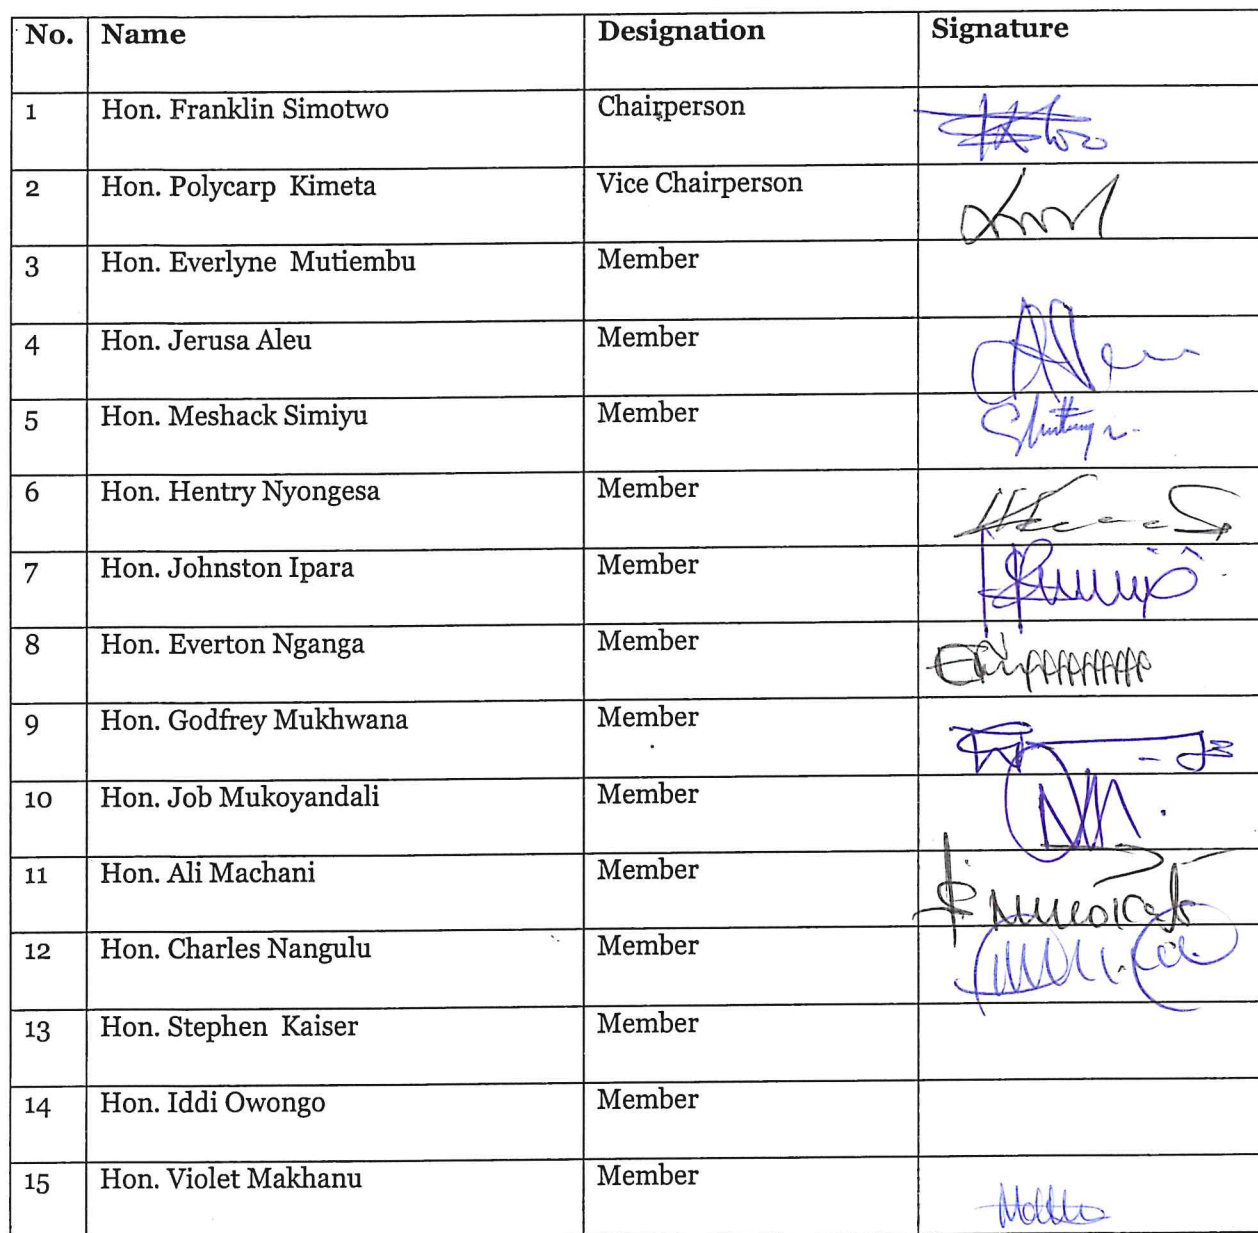 No. Name Designation Signature
1 Hon. Franklin Simotwo Chairperson
2 Hon. Polycarp Kimeta Vice Chairperson
3 Hon. Everlyne Mutiembu Member
4 Hon. Jerusa Aleu Member
5 Hon. Meshack Simiyu Member
6 Hon. Hentry Nyongesa Member
7 Hon. Johnston Ipara Member
8 Hon. Everton Nganga Member
9 Hon. Godfrey Mukhwana Member
10 Hon. Job Mukoyandali Member
11 Hon. Ali Machani Member
12 Hon. Charles Nangulu Member
13 Hon. Stephen Kaiser Member
14 Hon. Iddi Owongo Member
15 Hon. Violet Makhanu Member